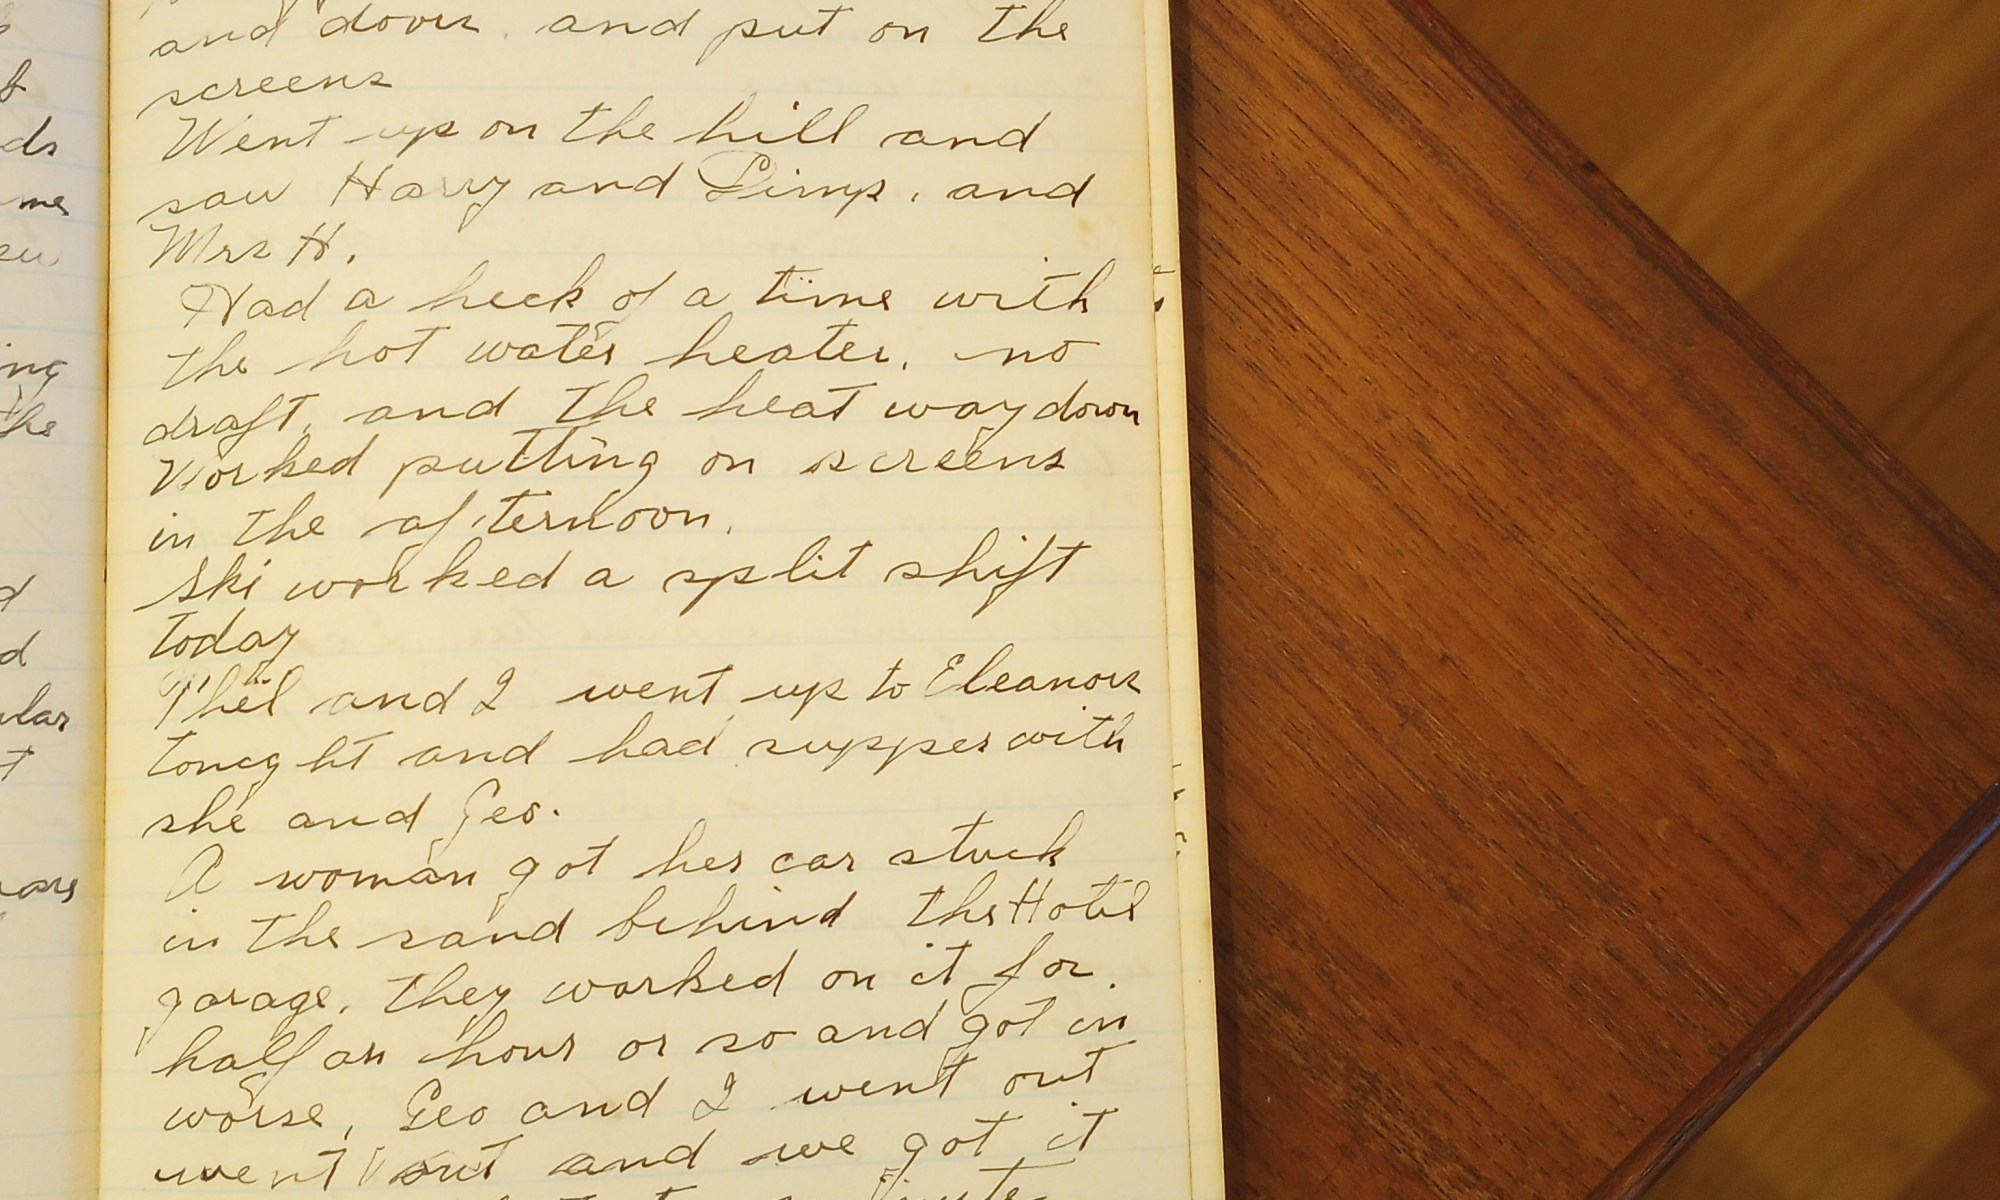 and doors, and put on the
screens
Went up on the hill and
saw Harry and Pimp, and
Mrs H.
Had a heck of a time with
the hot water heater, no
draft, and the heat way down
Worked putting on screens
in the afternoon.
Ski worked a split shift
today
Thel and I went up to Eleanors
tonight and had supper with
she and Geo.
A woman got her car stuck
in the sand behind the Hotel
garage, they worked on it for
half an hour or so and got in
worse, Geo and I went out
went out and we got it